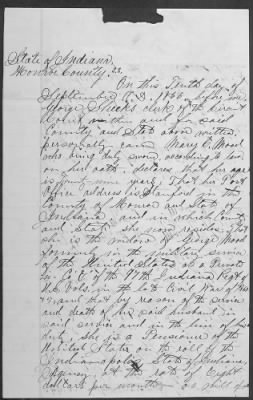 State of Indiana
Monroe County, ss.
On this Tenth day of
September A.D. 1866, before me
George Bucks clerk of the Circuit
Court within and for said
County and State above written
personally came Mary C. Wood
who being duly sworn, according to law
on her oath, declares that her age
is years; That her Post
Office address is Stanford in the
County of Monroe and State of
Indiana, and in which County
and State she now resides; that
she is the widow of George Wood
formerly in the military service
of the United States as a Private
in Co. of the 27th Indiana Regt of
U.S. Vols. in the late Civil War of
and that by reason of the service
and death of her said husband in
said service and in the line of his
duty, she is a Pensioner of the
United States on the roll of the
Indianapolis, State of Indiana,
Agency at the rate of Eight
dollars per month as will